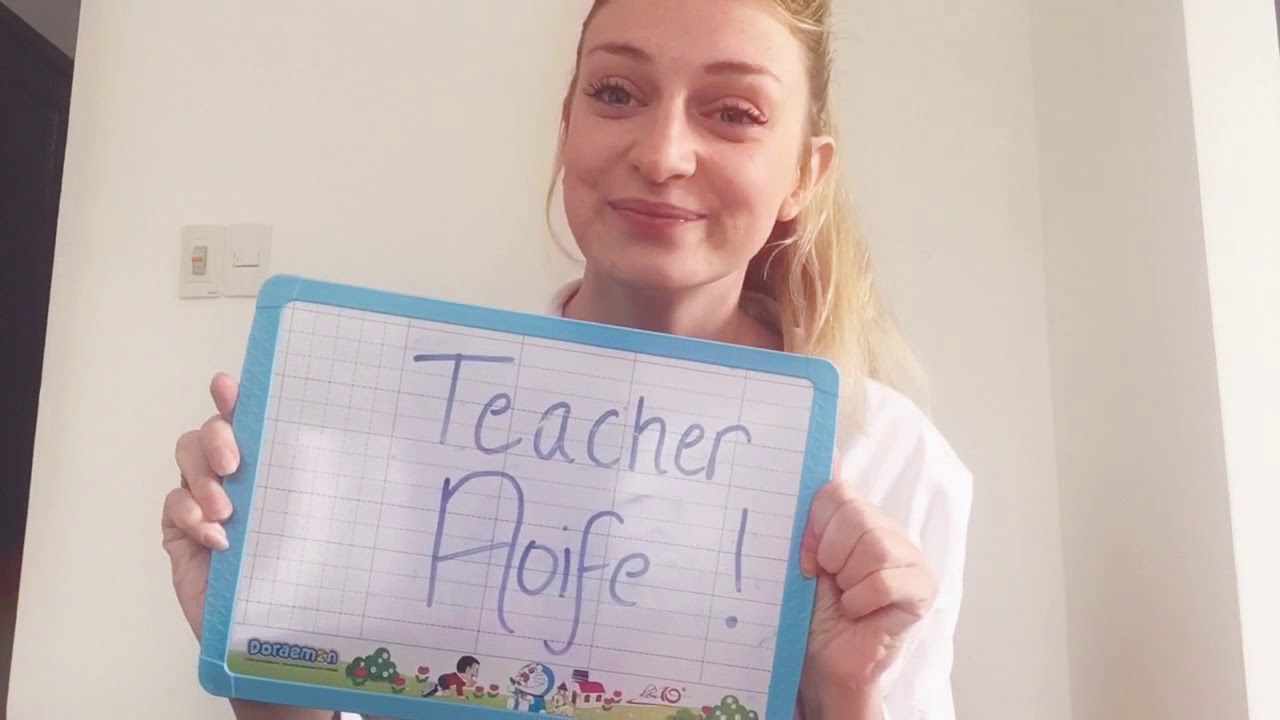 Teacher
Aoife !
Doraemon